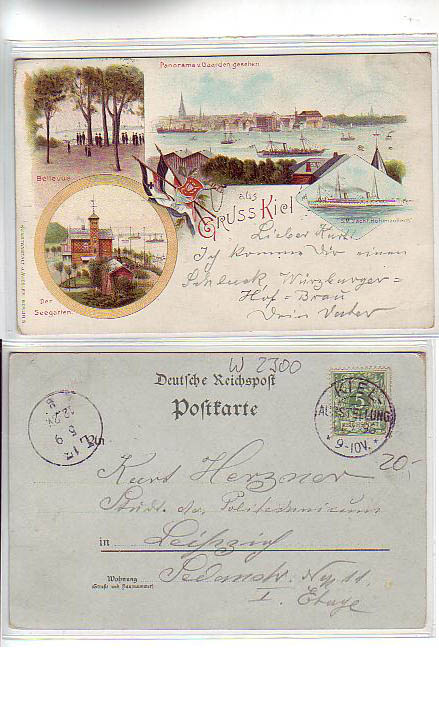 Panorama v. Gaarden gesehen
Bellevue
Gruss aus Kiel
S.M. Yacht Hohenzollern
Der
Seegarten
Lieber Kurt!
Ich komme Dir einen
Schluck, Würzburger-
Hof-Bräu
Dein Vater
W 2300
Deutsche Reichspost
Postkarte
KIEL
AUSSTELLUNG
9-10V.
5
20,-
Kurt Herzner
Stud. des Politechnicums
in Leipzig
Wohnung
(Straße und Hausnummer)
I. Etage